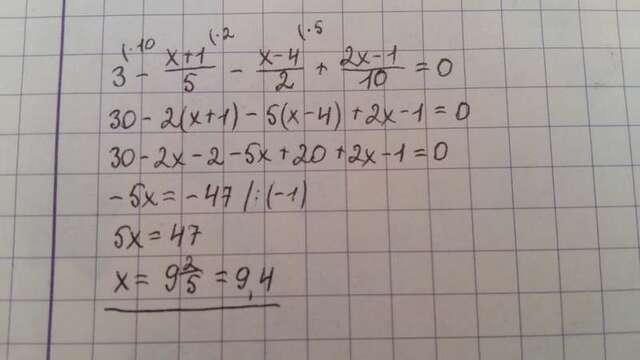 3 (·10 - x+1/5 (·2 - x-4/2 (·5 + 2x-1/10 = 0
30 - 2(x+1) - 5(x-4) + 2x-1 = 0
30-2x-2-5x+20+2x-1=0
-5x = -47 /:(-1)
5x = 47
x = 9 2/5 = 9,4